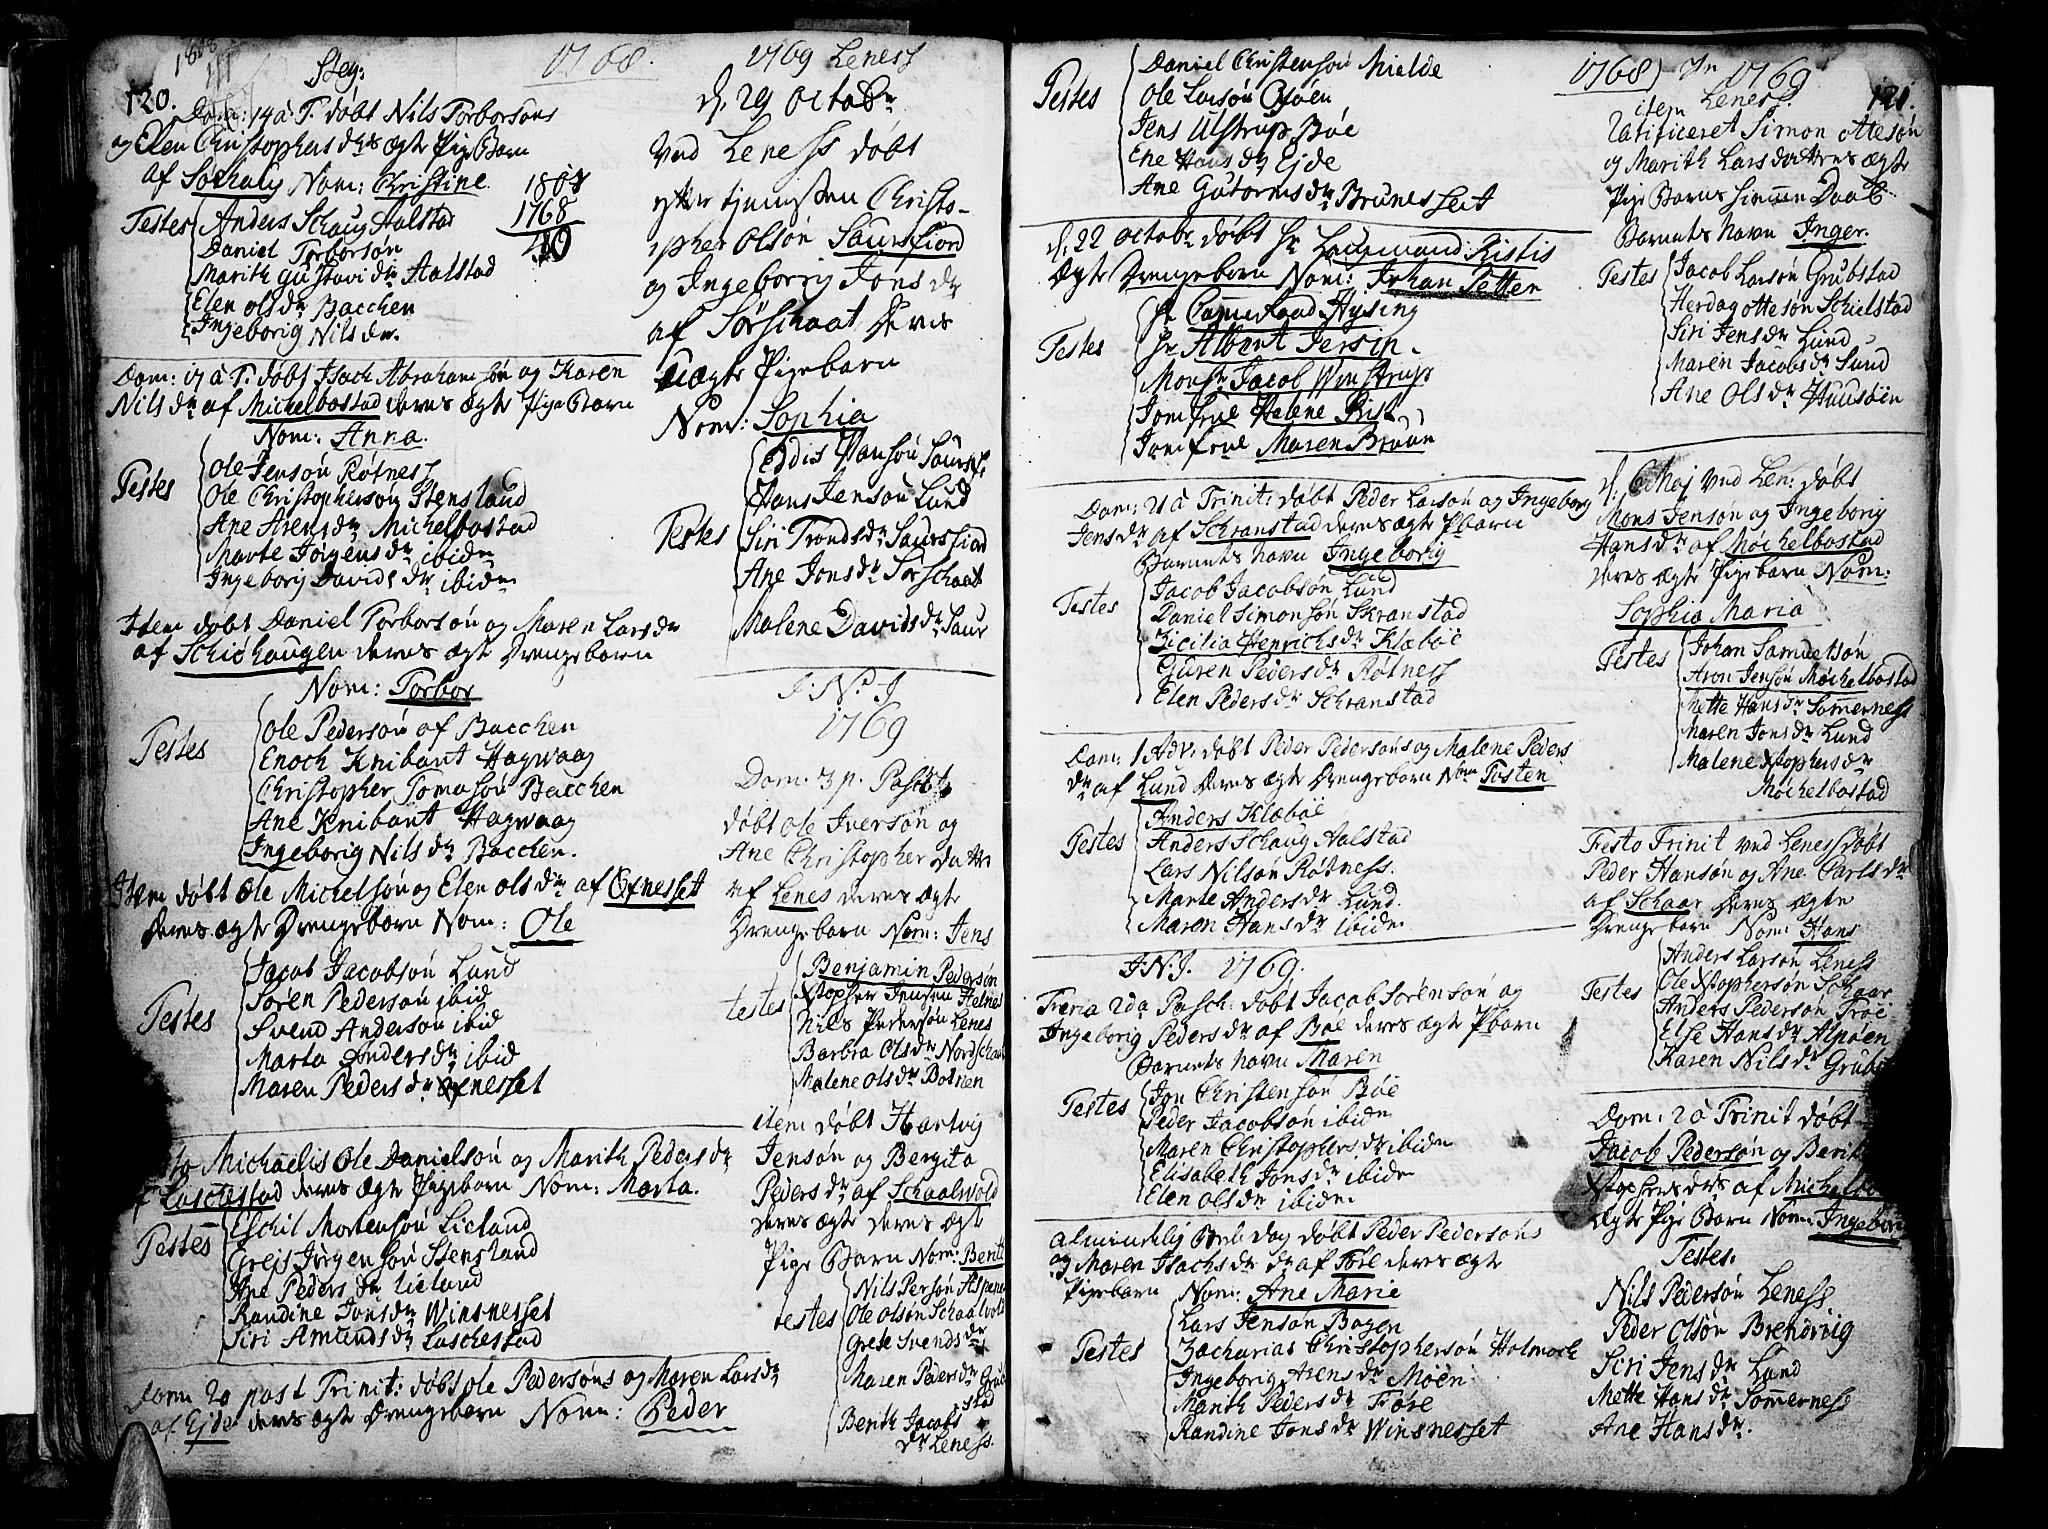 1808
120.
Steg:
1768.
Dom: 14 à T. døbt Nils Torborsøns
og Elen Christophers drs ægte Pige Barn
af Sørhaug Nom: Christine
1808
1768
40
Testes
Anders Schaug Aalstad
Daniel Torborsøn
Marith Gustavi dr Aalstad
Elen Ols dr Bacchen
Ingeborig Nils dr.
Dom: 17 à T. døbt Isach Abrahamsøn og Karen
Nils dr af Michelbostad deres ægte Pige Barn
Nom: Anna.
Testes
Ole Jensøn Røtness
Ole Christophersøn Stensland
Ane Arens dr Michelbostad
Marte Jørgens dr ibidm
Ingeborg Davids dr ibidm
Item døbt Daniel Torborsøn og Maren Lars dr
af Schiøhaugen deres ægte Drengebarn
Nom: Torbor
Testes
Ole Pedersøn af Bacchen
Enoch Knibant Hagwaag
Christopher Tomasøn Bacchen
Ane Knibant Hagwaag
Ingeborig Nils dr Bacchen.
Item døbt Ole Michelsøn og Elen Ols dr af Exnesset
Deres ægte Drengebarn Nom: Ole
Testes
Jacob Jacobsøn Lund
Søren Pedersøn ibid
Svend Andersøn ibid
Marta Anders dr ibid
Maren Peders dr Exnesset
Michaelis Ole Danielsøn og Marith Peders dr
Laschestad deres ægte Pigebarn Nom: Marta.
Testes
Eschil Mortensøn Lieland
Grejs Jørgensøn Stensland
Ane Peders dr Lieland
Randine Jons dr Winsnesset
Siri Amunds dr Laschestad
Dom 20 post Trinit: døbt Ole Pedersøns og Maren Lars dr
af Ejde deres ægte Drengebarn Nom: Peder
1769 Leness
d. 29 Octobr
Ved Leness døbt
efter tjenisten Christo-
pher Olsøn Saursfiord
og Ingeborrig Jons dr
af Sørschaat Deris
uægte Pigebarn
Nom: Sophia
Testes
Eddis Hansøn Saursf:
Hans Jensøn Lund
Siri Tronds dr Saursfiord
Ane Jons dr Sørschaat
Malene Davids dr Saur
I. N. J
1769
Dom. 3 p. Pasch
døbt Ole Iversøn og
Ane Christopher Datter
af Lenes deres ægte
Drengebarn Nom: Jens
testes
Benjamin Pedersøn
Xstopher Jensen Helnes
Nils Pedersøn Lenes
Barbra Ols dr Nordschaat
Malene Ols dr Botnen
item døbt Hartvig
Jensøn og Bergita
Peders dr af Schaalwold
deres ægte deres ægte
Pige Barn Nom: Berit
testes
Nils Persøn Aspenes
Ole Olsøn Schaalvold
Grete Svends dr
Maren Peders dr Grub
stad
Berith Jacobs
dr Leness.
Testes
Daniel Christensøn Mielde
Ole Larsøn Øsøen
Jens Ulstrup Bøe
Ene Hans dr Ejde
Ane Gutorms dr Brunesset
d. 22 Octobr døbt Hr Laugmand Ristis
Ægte Drengebarn Nom: Johan Petter
Testes
Hr Camerraad Hysing
Hr Albert Jersin
Monsr Jacob Winstrup
Jomfrue Halene Rist
Jomfrue Maren Bruun
Dom: 21 à Trinit: døbt Peder Larsøn og Ingeborg
Jens dr af Schranstad deres ægte Pbarn
Barnets navn Ingeborig
Testes
Jacob Jacobsøn Lund
Daniel Simonsøn Skranstad
Zicilia Henrichs dr Klæbøe
Guren Peders dr Røtness
Elen Peders dr Schranstad
Dom: 1 Adv: døbt Peder Pedersøns og Malene Peders
dr af Lund Deres ægte Drengebarn Nom Tosten
Testes
Anders Klæbøe
Anders Schaug Aalstad
Lars Nilsøn Røtness.
Marte Anders dr Lund.
Maren Hans dr ibidm
I.N.J. 1769.
Feria 2da Pasch: døbt Jacob Sørensøn og
Ingeborig Peders dr af Bøe deres ægte Pbarn
Barnets navn Maren
Testes
Jon Christensøn Bøe
Peder Jacobsøn ibidm
Maren Christophers dr ibidm
Elisabeth Jons dr ibidm
Elen Ols dr ibidm
Almindelig Bededag døbt Peder Pedersøns
og Maren Isachs dr af Føre deres ægte
Pigebarn Nom: Ane Marie
Testes
Lars Jensøn Bogen
Zacharias Christophersøn Holmoch
Ingeborig Arens dr Møen
Marith Peders dr Føre
Randine Jons dr Winsnesset
1768) In 1769
121.
item Leness.
Ratificeret Simon Ottesøn
og Marith Lars datters ægte
Pige Barns hiemme Daab
Barnets Navn Inger.
Testes
Jacob Larsøn Grubstad
Herdag Ottesøn Schielstad
Siri Jens dr Lund
Maren Jacobs dr Lund
Ane Ols dr Huusøen
d. 6 Maj ved Len: døbt
Mons Jensøn og Ingeborig
Hans dr af Møchelbostad
deres ægte Pigebarn Nom:
Sophia Maria
Testes
Johan Samuelsøn
Aron Jensøn Møchelbostad
Mette Hans dr Somerness
Maren Jons dr Lund
Malene Xstophers dr
Møchelbostad
Festo Trinit ved Leness døbt
Peder Hansøn og Ane Carls dr
af Schaar Deres Ægte
Drengebarn Nom: Hans
Testes
Anders Larsøn Leness
Ole Xstophersøn Schaar
Anders Pedersøn Trøe
Else Hans dr Alpøen
Karen Nils dr Grub
Dom: 2 à Trinit døbt
Jacob Pedersøn og Berit
Xstophers drs af Michelbo
Ægte Pige Barn Nom: Ingebor
Testes.
Nils Pedersøn Leness
Peder Olsøn Brendvig
Siri Jens dr Lund
Mette Hans dr Sommerness
Ane Hans dr.